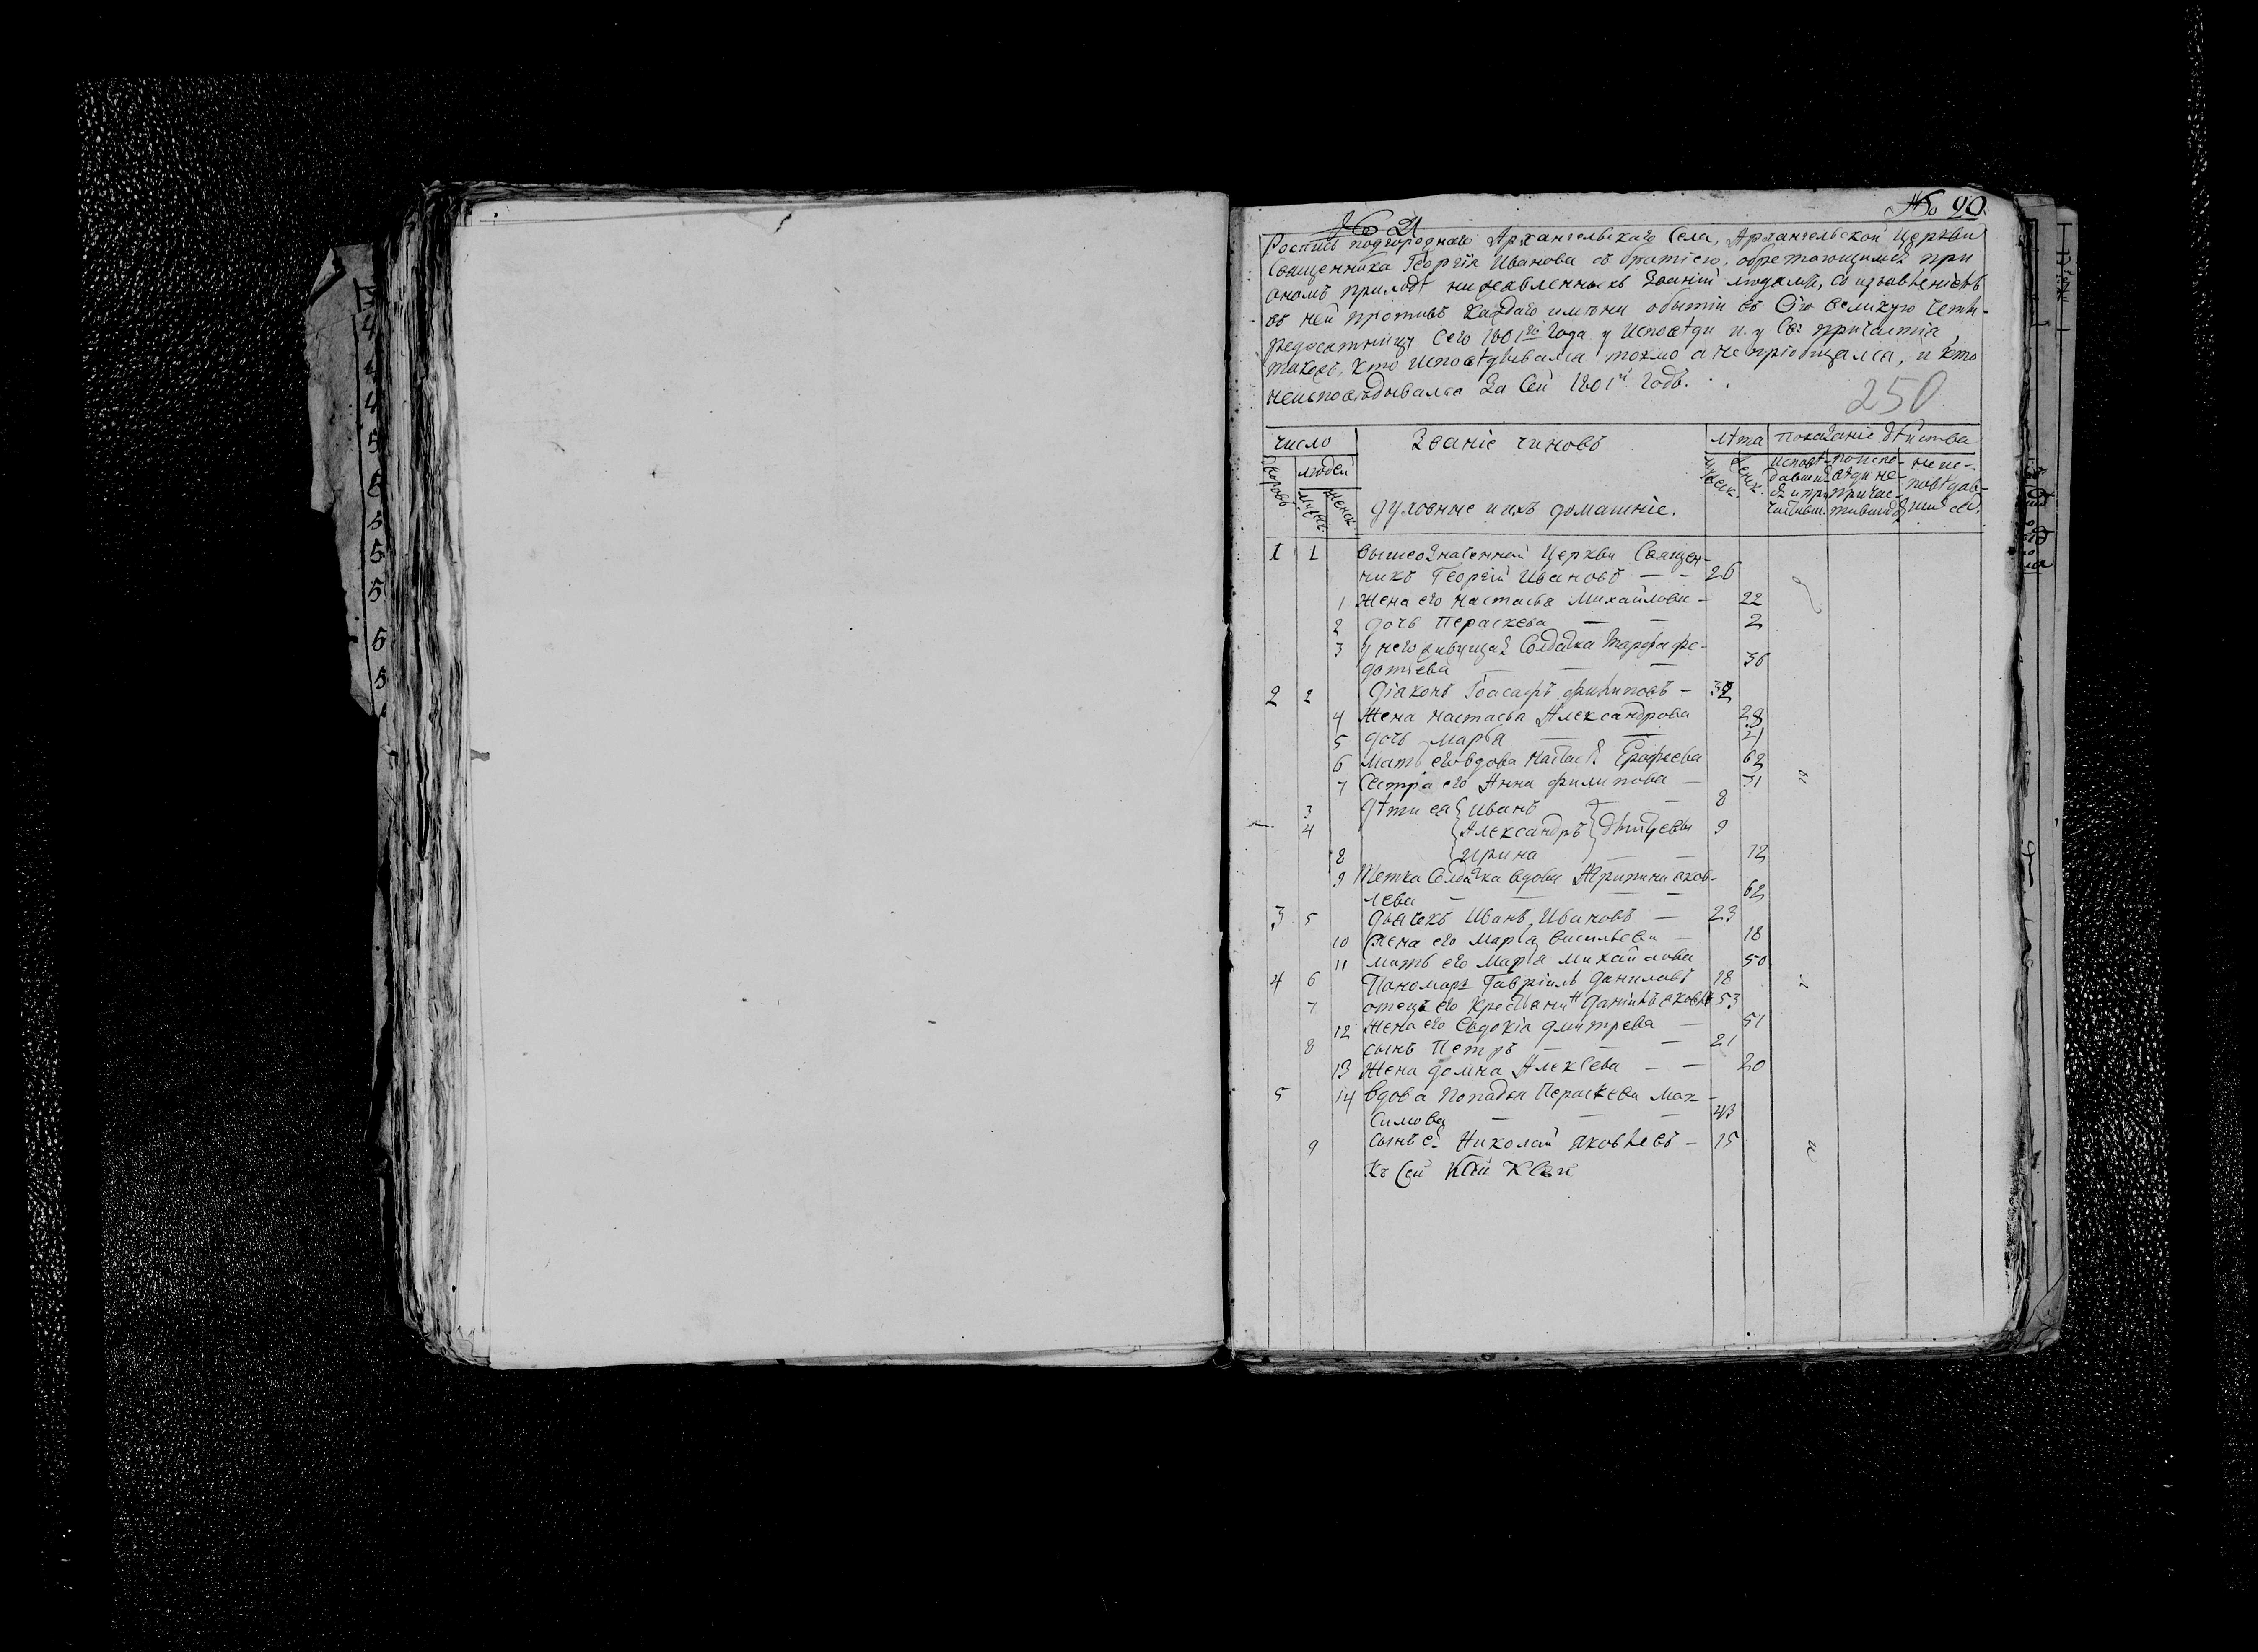 № 90
№ 21
Роспись подгороднаго Архангельскаго Села, Архангельской Церкви
Священника Георгія Иванова съ братіею, обретающимся при
ономъ приходѣ нижеявленныхъ Званій людямъ, со изъявленіемъ
въ ней противъ каждаго имѣни о бытіи въ Ст҃ю Великую Чети-
редесятницу сего 1801го года у исповѣди и у Св: причастія
такожъ, кто исповѣдывался токмо а не пріобщался, и кто
неисповѣдывался За Сей 1801й годъ.
250
число Званіе чиновъ лѣта показаніе дѣйства
дворовъ людей мужск. женск.
мужеск. женск.
исповѣ- поиспо- неис-
давши- вѣди не- повѣдав-
причас- шися.
Духовные и ихъ домашніе.
1 1 Вышеозначенной Церкви Священ-
никъ Георгій Ивановъ — — 26
1 Жена его Настасья Михайлова — 22
2 дочь Пераскева — — 2
3 у него Солдатка Марфа Фе-
дотьева — — — 36
2 2 Діаконъ Іоасафъ Филиповъ — 32
4 Жена Настасья Александрова 28
5 дочь Марья — —
6 Мать его вдова Ерофеева 62
7 Сестра его Анна Филипова — 31
3 дѣти ея Иванъ — — 8
4 Александръ 9
8 Ирина — — 12
9 Тетка Солдатка вдова Яков-
лева — — — 62
3 5 Дьячекъ Иванъ Ивановъ — 23
10 Жена его Марья Васильева — 18
11 мать его Марья Михайлова 50
4 6 Пономарь Гавріилъ Даниловъ 18
7 отецъ его крестьянинъ Даніилъ Яковл 53
12 Жена его Евдокія Дмитрева — 51
8 сынъ Петръ — — — 21
13 Жена Домна Алексѣева — — 20
5 14 Вдова Попадья Пераскева Мак-
симова — — — 43
9 Сынъ ея Николай Яковлевъ — 15
Къ Сей